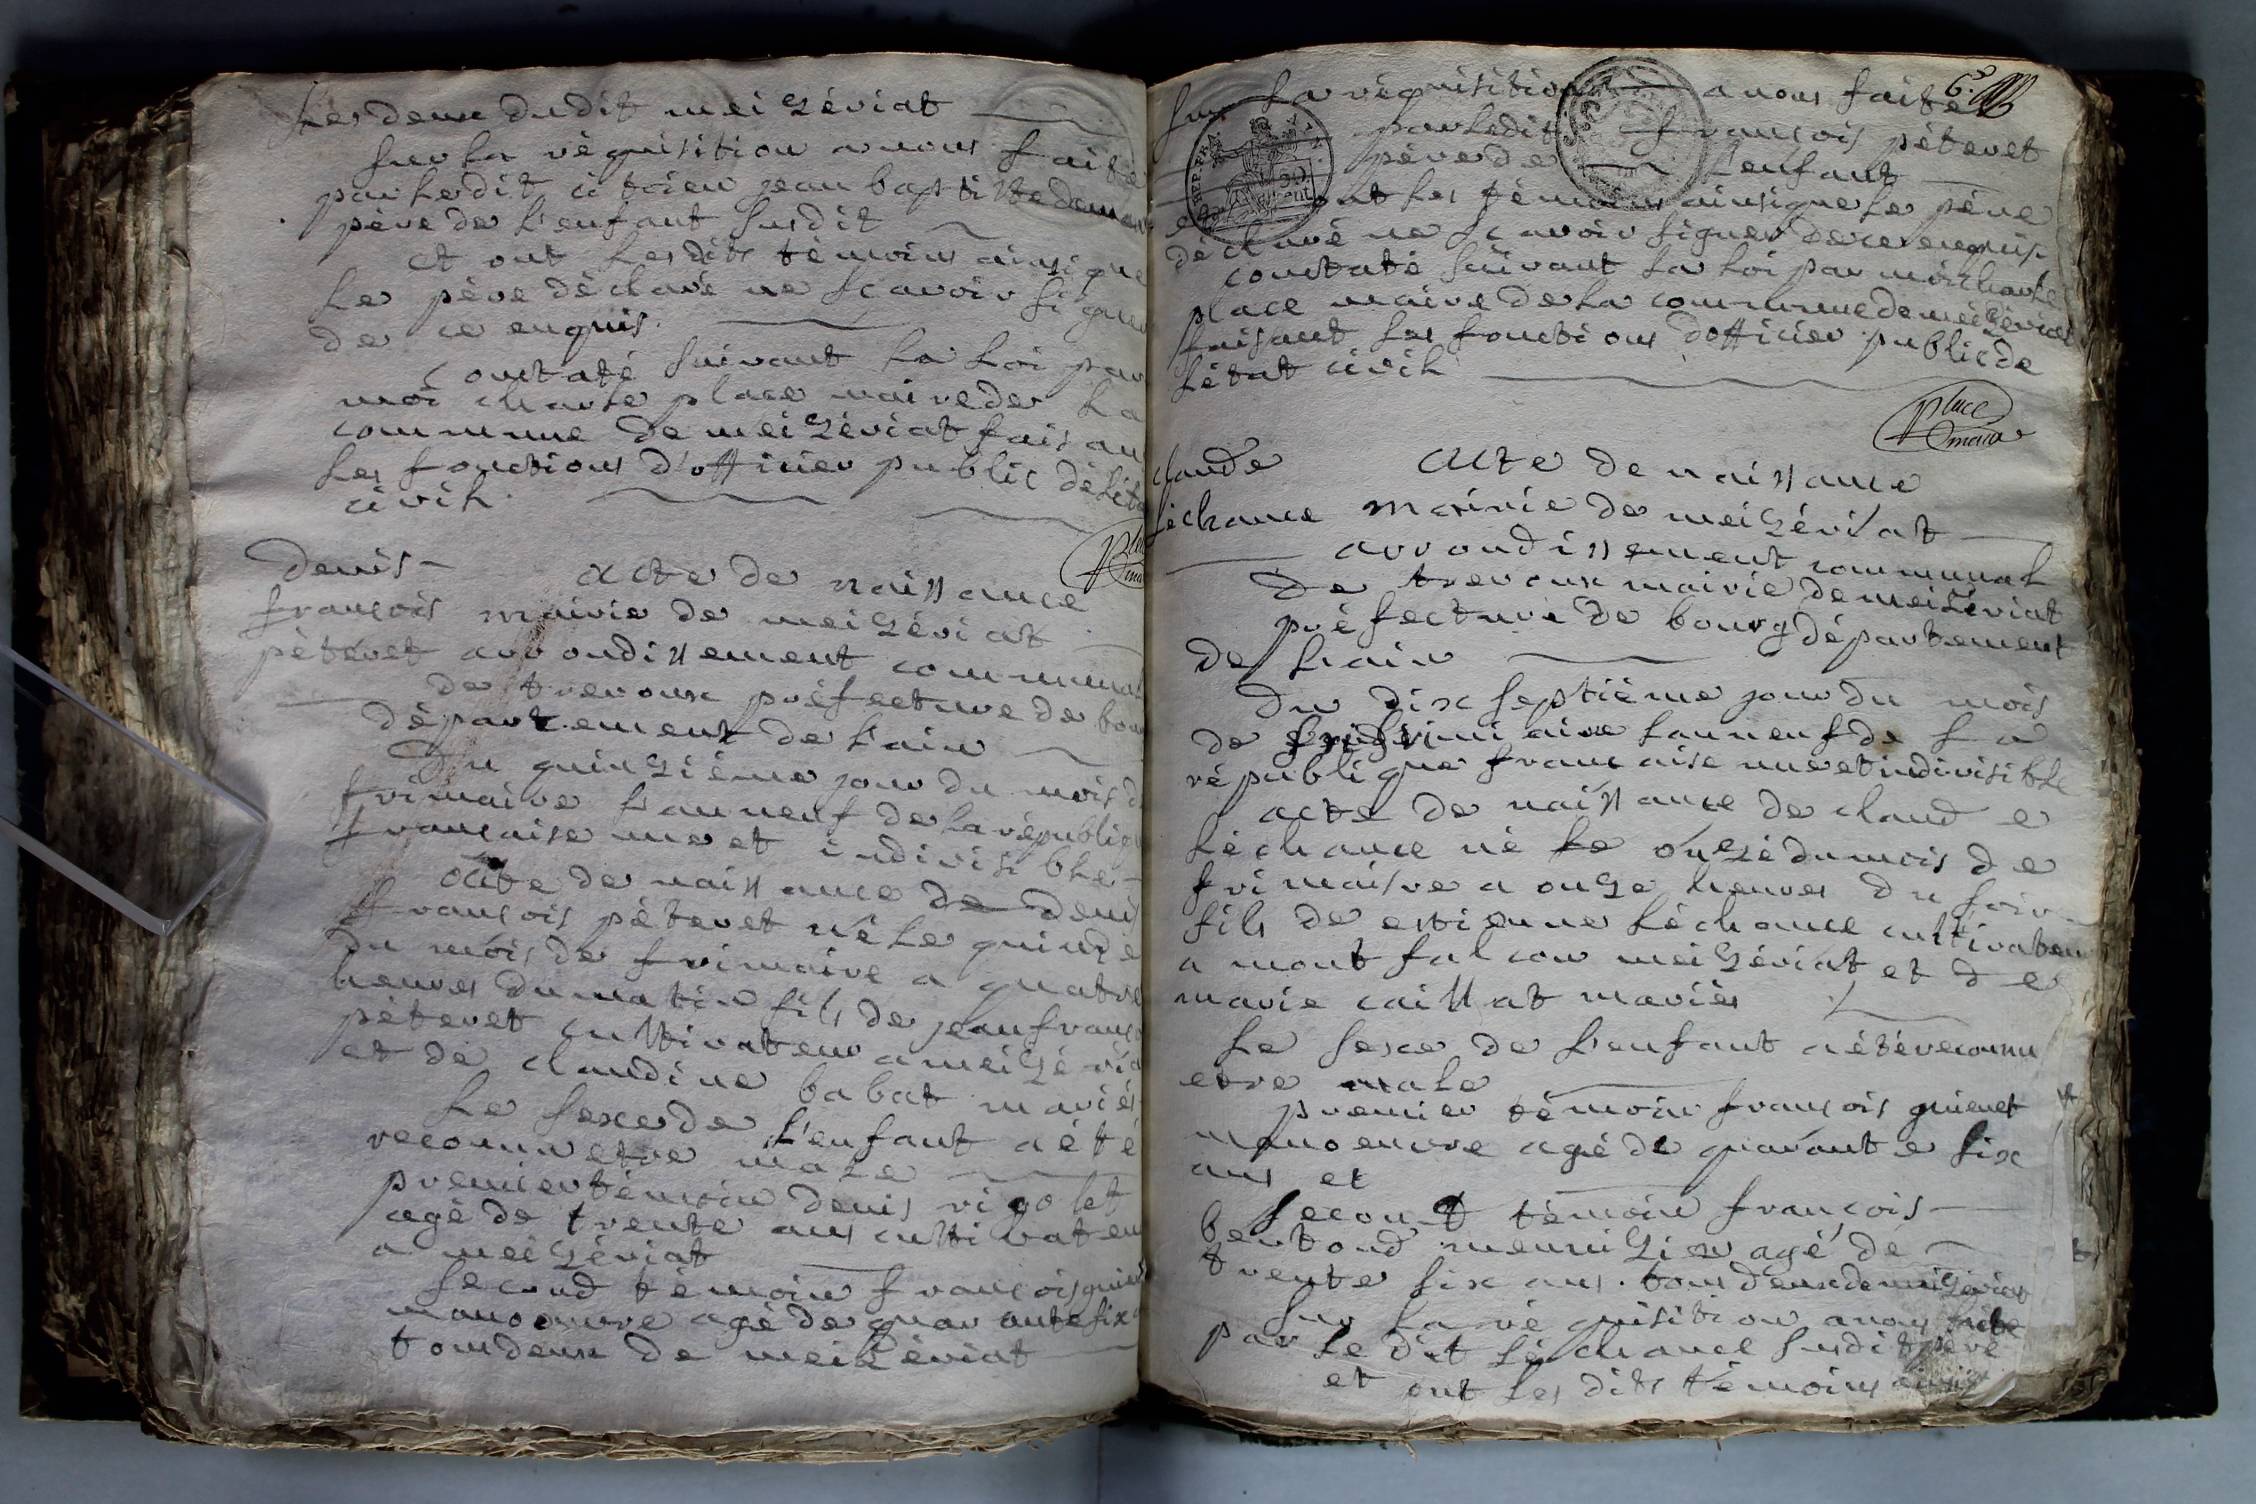 Les deux dudit meizériat
sur la réquisition a nous faite
par ledit citoien jean baptiste
père de l'enfant susdit
et ont lesdits témoins ainsi que
le père déclaré ne sçavoir signer
de ce enquis.
constaté suivant la loi par
moi charle place maire de la
commune de meizériat faisan
les fonctions d'officier public de l'éta
civil.
Place
denis
françois
péteret
acte de naissance
mairie de meizériat
arrondissement communal
de trevoux préfecture de bour
département de l'ain
Du quinzième jour du mois d
frimaire l'an neuf de la républiq
française une et indivisible
acte de naissance de denis
françois péteret né le quinze
du mois de frimaire a quatre
heures du matin fils de jean franço
péteret cultivateur a meizéria
et de claudine babat mariés
le sexe de l'enfant a été
reconnu etre male
premier témoin denis rigolet
agé de trente ans cultivateu
a meizériat
second témoin françois
manoeuvre agé de quarante six
tous deux de meizériat
6e
sur la réquisition a nous faite
par ledit françois péteret
père de l'enfant
ont les témoins ainsi que le père
déclaré ne sçavoir signer de ce enquis
constaté suivant la loi par moi charle
place maire de la commune de meizériat
faisant les fonctions d'officier public de
l'état civil
Place
maire
REP. FRA.
claude
léchance
acte de naissance
mairie de meizériat
arrondissement communal
de trevoux mairie de meizériat
préfecture de bourg département
de l'ain
Du dix septième jour du mois
de frimaire l'an neuf de la
république française une et indivisible
acte de naissance de claude
léchance né le onze du mois de
frimaire a onze heures du soir
fils de estienne léchance cultivateur
a mont falcon meizériat et de
marie caillat mariés
le sexe de l'enfant a été reconnu
etre male
premier témoin françois
manoeuvre agé de quarante six
ans et
second témoin françois
bertoud agé de
trente six ans. tous deux de meizériat
sur la réquisition a nous faite
par le dit léchance susdit père
et ont les dits témoins ainsi